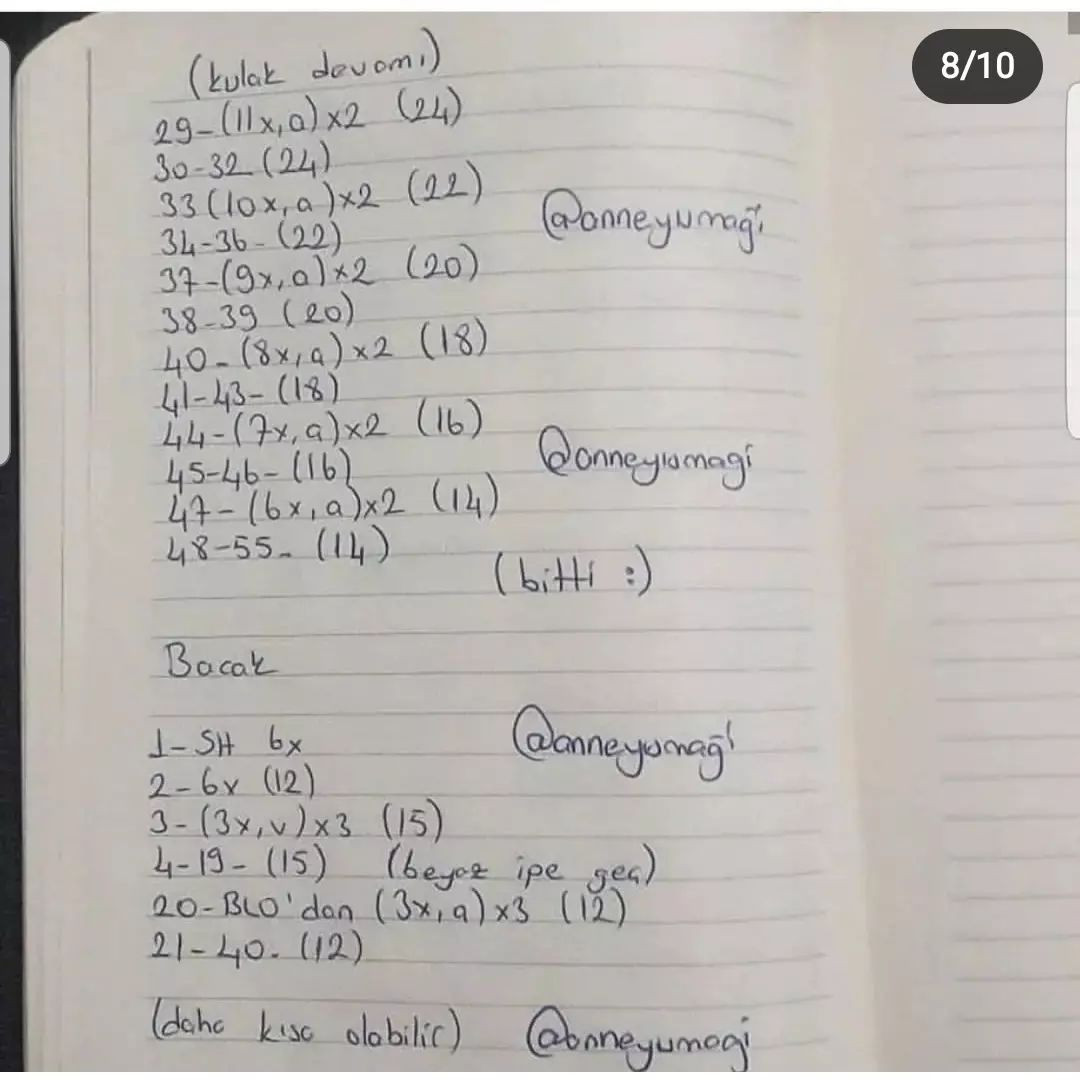 8/10
(kulak devamı)
29-(11x,a)x2 (24)
30-32 (24)
33(10x,a)x2 (22)
@anneyumağı
34-36-(22)
37-(9x,a)x2 (20)
38-39 (20)
40-(8x,a)x2 (18)
41-43-(18)
44-(7x,a)x2 (16)
@anneyumagi
45-46-(16)
47-(6x,a)x2 (14)
48-55- (14)
(bitti :)
Bacak
1-SH 6x
@anneyumağı
2-6v (12)
3-(3x,v)x3 (15)
4-19-(15) (beyaz ipe geç)
20-BLO'dan (3x,a)x3 (12)
21-40-(12)
(daha kısa olabilir) @anneyumagi